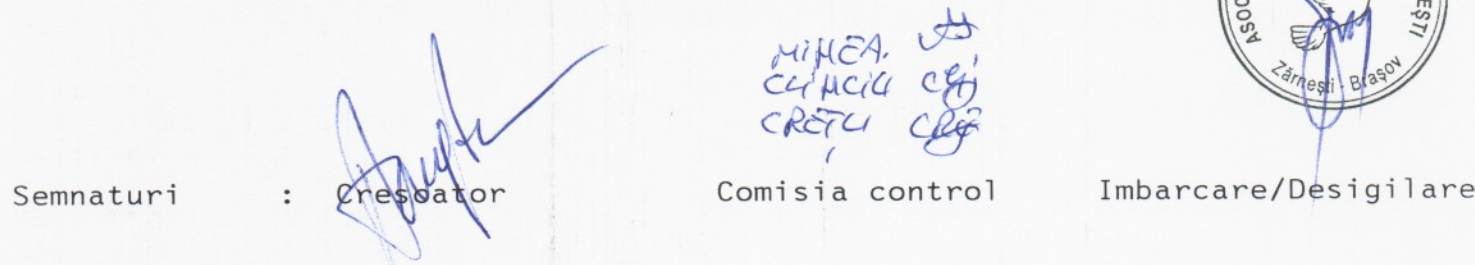 MIHEA.
CLINCIU
CREȚU
ASOC
EȘTI
Zărnești - Brașov
Semnaturi : Crescator Comisia control Imbarcare/Desigilare